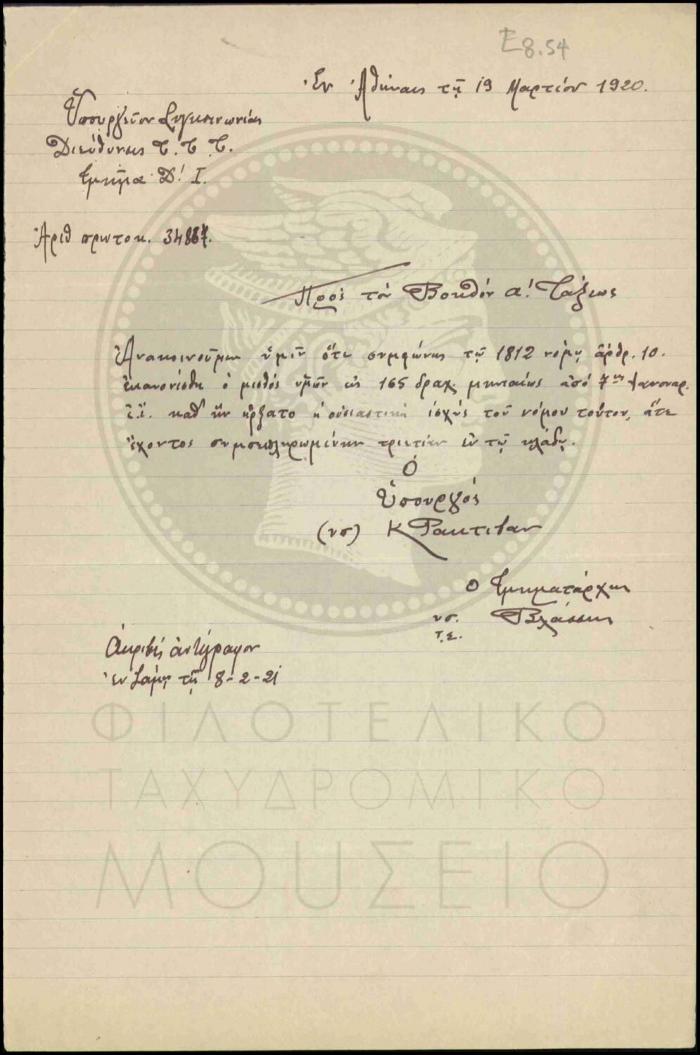 Ε8.54
Ἐν Ἀθήναις τῇ 19 Μαρτίου 1920.
Ὑπουργεῖον Συγκοινωνίας
Διεύθυνσις Τ. Τ. Τ.
Τμῆμα Δ! Ι.
Ἀριθ πρωτοκ. 34887.
Πρὸς τὸν Βοηθὸν α! Τάξεως
Ἀνακοινοῦμεν ὑμῖν ὅτι συμφώνως τῷ 1812 νόμῳ ἄρθρ. 10.
ἐκανονίσθη ὁ μισθὸς ὑμῶν εἰς 165 δραχ. μηνιαίως ἀπὸ 7ης Ἰανουαρ.
ἔ.ἔ. καθ' ἣν ἤρξατο ἡ οὐσιαστικὴ ἰσχὺς τοῦ νόμου τούτου, ἅτε
ἔχοντος συμπεπληρωμένην τριετίαν ἐν τῷ κλάδῳ.
Ὁ
Ὑπουργός
(υπ) Κ Ρακτιβαν
Ὁ Τμηματάρχης
υπ. Βλάσσης
Τ.Σ.
Ἀκριβὲς ἀντίγραφον
ἐν Σάμῳ τῇ 8-2-21
ΦΙΛΟΤΕΛΙΚΟ
ΤΑΧΥΔΡΟΜΙΚΟ
ΜΟΥΣΕΙΟ